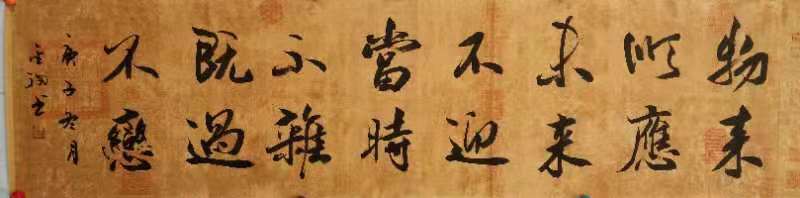 物来
順應
未来
不迎
當時
不雜
既過
不戀
庚子冬月